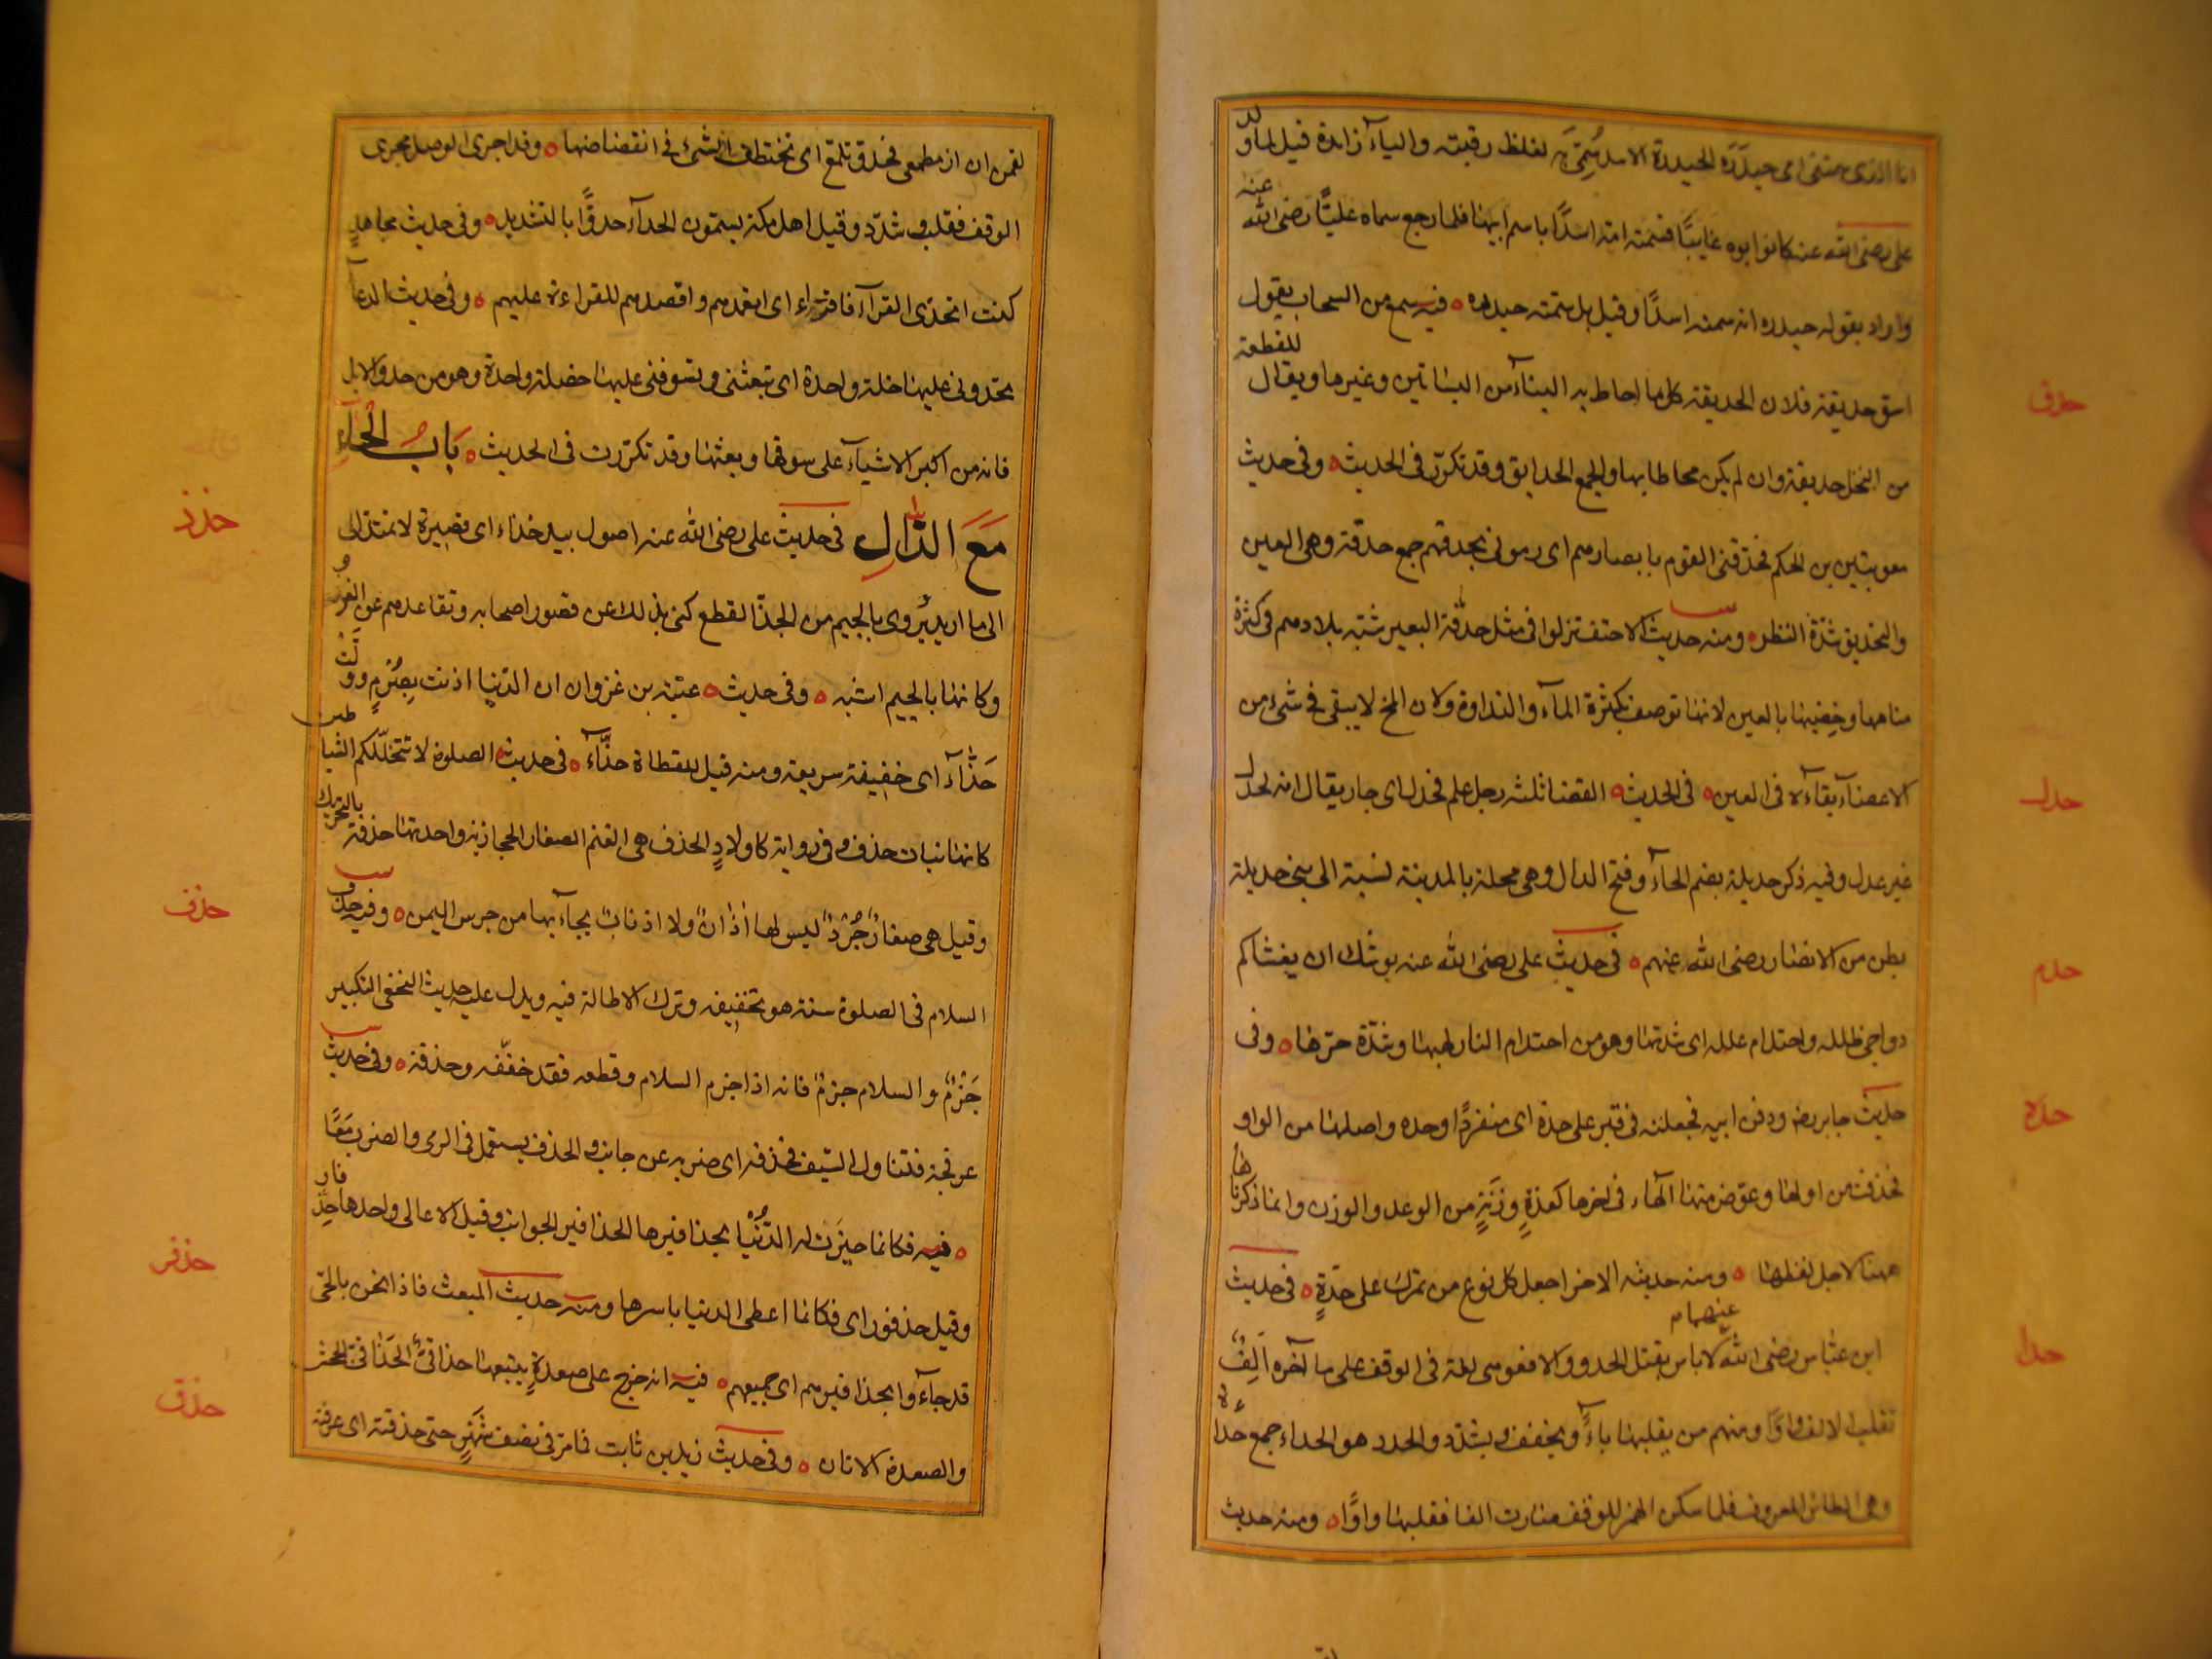 انا الذى سمتنى امى حيدَرَه الحيدرة الاسد سُمِّىَ به لغلظ رقبته والياء زائدة قيل لما ولد
على رضى الله عنه كان ابوه غايبًا فسمته امه اسدًا باسم ابيها فلما رجع سماه عليًّا رضى الله عنه
واراد بقوله حيدره انه سمته اسدًا وقيل بل سمته حيدره ه فيه سمع من السحاب يقول
اسق حديقة فلان الحديقة كل ما احاط به البناء من البساتين وغيرها ويقال للقطعة
من النخل حديقة وان لم يكن محاطا بها والجمع الحدايق وقد تكرر فى الحديث ه وفى حديث
معوية بن الحكم فحدّقنى القوم بابصارهم اى رمونى بحدقهم جمع حدقة وهى العين
والتحديق شدّة النظر ه ومنه حديث الاحنف نزلوا فى مثل حدقة البعير شبّه بلادهم فى كثرة
مناهها وخصبها بالعين لانها توصف بكثرة الماء والنداوة ولان المخ لا يبقى فى شىء من
الاعضاء بقاءه فى العين ه فى الحديث ه القضاة ثلثة رجل علم فحدل اى جار يقال انه لحدل
غير عدل وفيه ذكر حديلة بضم الحاء وفتح الدال وهى محلة بالمدينة نسبة الى بنى حديلة
بطن من الانصار رضى الله عنهم ه فى حديث على رضى الله عنه يوشك ان يغشاكم
دواجى ظلله واحتدام علله اى شدتها وهو من احتدام النار لهبها وشدّة حرّها ه وفى
حديث جابر رض ودفن ابيه فجعلته فى قبر على حدة اى منفردًا وحده واصلها من الواو
فحذفت من اولها وعوّض منها الهاء فى اخرها كعدةٍ وزنَةٍ من الوعد والوزن وانما ذكرناها
ههنا لاجل لفظها ه ومنه حديثه الاخر اجعل كل نوع من تمرك على حِدَةٍ ه فى حديث
ابن عبّاس رضى الله عنهما لا باس بقتل الحدو والافعو هى لغة فى الوقف على ما آخره اَلِفٌ
تقلب الالف واوًا ومنهم من يقلبها ياءً ويخفف ويشدّد والحدو هو الحداء جمع حدأة
وهى الطائر المعروف فلما سكن الهمز للوقف صارت الفا فقلبها واوًا ه ومنه حديث
حدق
حدل
حدم
حده
حدا
لقمن ان ار مطمعى فحدوّ تلمّع اى تختطف الشىء فى انقضاضها ه وقد اجرى الوصل مجرى
الوقف فقلب وشدّد وقيل اهل مكة يسمّون الحداء حدوًّا بالتشديد ه وفى حديث مجاهدٍ
كنت اتحدّى القراء فاقراء اى اتعمدهم واقصدهم للقراءة عليهم ه وفى حديث الدعاء
تحدونى عليها خلة واحدة اى تبعثنى وتسوقنى عليها خصلة واحدة وهو من حدو الابل
فانه من اكبر الاشياء على سوقها وبعثها وقد تكرّرت فى الحديث ه بَابُ الْحَاءِ
مَعَ الذَّالِ فى حديث على رضى الله عنه اصول بيد حذاء اى قصيرة لا تمتد الى
الى ما اريد يُروى بالجيم من الجذّ القطع كنى بذلك عن قصور اصحابه وتقاعدهم عن الغزو
وكانها بالجيم اشبه ه وفى حديث ه عتبة بن غزوان ان الدّنيا اذنت بِصُرْمٍ ووَلَّتْ
حَذَّاءَ اى خفيفة سريعة ومنه قيل للقطاة حذّاء ه فى حديث الصلوة لا تتخلّلكم الشياطين
كانها بنات حذف وفى رواية كاولادِ الحذف هى الغنم الصغار الحجازية واحدتها حذفة بالتحريك
وقيل هى صغارٌ جُرْدٌ ليس لها اٰذانٌ ولا اذنابٌ يجاء بها من جرس اليمن ه وفيه حذف
السلام فى الصلوة سنة هو تخفيفه وترك الاطالة فيه ويدل عليه حديث النخعى التكبير
جَزْمٌ والسلام جزمٌ فانه اذا جزم السلام وقطعه فقد خفّفه وحذفه ه وفى حديث
عرفجة فتناول السّيف فحذفه اى ضربه عن جانب والحذف يستعمل فى الرمى والضرب مَعًا
ه فيه فكانما حيزَت له الدُّنْيَا بحذافيرها الحذافير الجوانب وقيل الاعالى واحدها حِذفار
وقيل حذفور اى فكانما اعطى الدنيا باسرها ومنه حديث المبعث فاذا نحن بالحىّ
قد جآءوا بحذافيرهم اى جميعهم ه فيه انه خرج على صعدةٍ يتبعها حذاقىٌّ الحُذاقىّ الجحش
والصعدة الاتان ه وفى حديث زيد بن ثابت فما مرّ فى نصف شَهْرٍ حتى حذقته اى عرفته
حذذ
حذف
حذفر
حذق